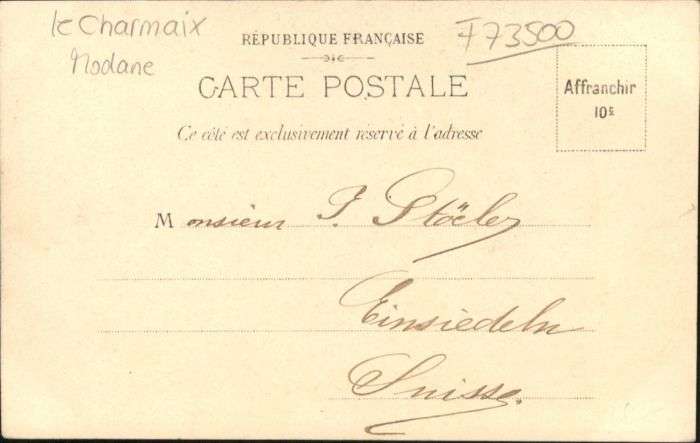 le Charmaix
Modane
F73500
RÉPUBLIQUE FRANÇAISE
CARTE POSTALE
Ce côté est exclusivement réservé à l'adresse
Affranchir
10c
Monsieur
Einsiedeln
Suisse.